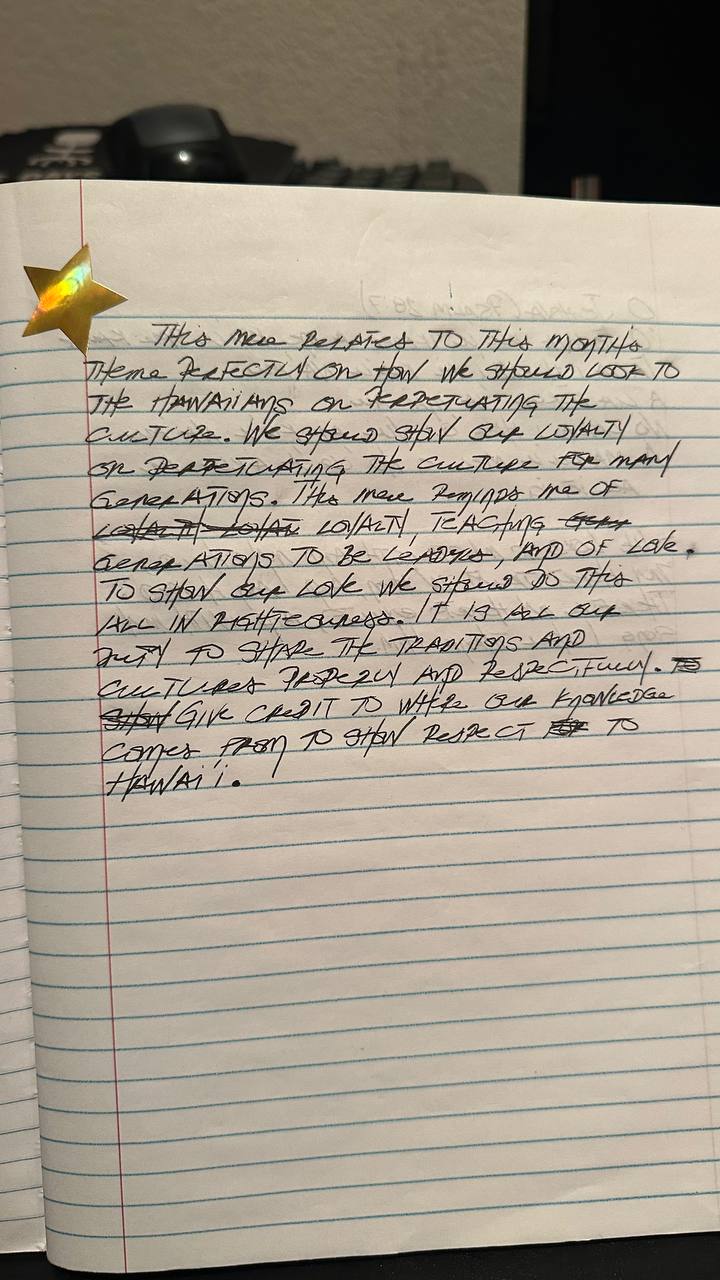 This mele relates to this months
theme perfectly on how we should look to
the Hawaiians on perpetuating the
culture. We should show our loyalty
on perpetuating the culture for many
generations. This mele reminds me of
loyalty, teaching
generations to be leaders, and of love.
To show our love we should do this
all in righteousness. It is all our
duty to share the traditions and
cultures properly and respectfully. To
show give credit to where our knowledge
comes from to show respect for to
Hawai'i.